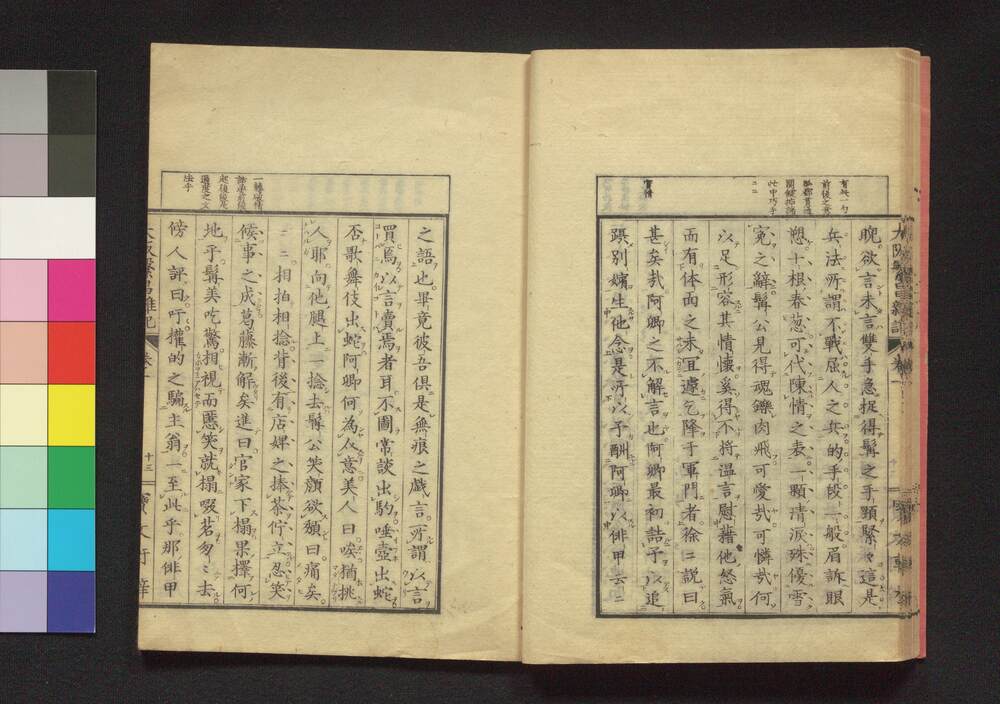 晩欲言未言雙手急捉得髯之手頸緊々這是
兵法所謂不戰屈人之兵的手段一般眉訴眼
愬十根春葱可代陳情之表一顆清淚殊優雪
寃之辭髯公見得魂鑠肉飛可愛哉可憐哉何
以足形容其情懷奚得不將溫言慰藉他怒氣
而有体面之未宜遽乞降于軍門者徐々説曰
甚矣哉阿卿之不解言也阿卿最初詰予以追
躡別嬪生他念是所以予酬阿卿以俳甲去々
之語也畢竟彼吾倶是無痕之戲言所謂以言
買焉以言賣焉者耳不圖常談出駒唾壺出蛇
否歌舞伎出蛇阿卿何為介意美人曰唉猶挑
人耶向他腿上一捻去髯公笑顏欲頽曰痛矣
々々相拍相捻背後有店婢之捧茶佇立忍笑
候事之成葛藤漸解矣進曰官家下榻果擇何
地乎髯美吃驚相視而匿笑就榻啜茗匆々去
傍人評曰吁權的之騙主翁一至此乎那俳甲
卷一
十三